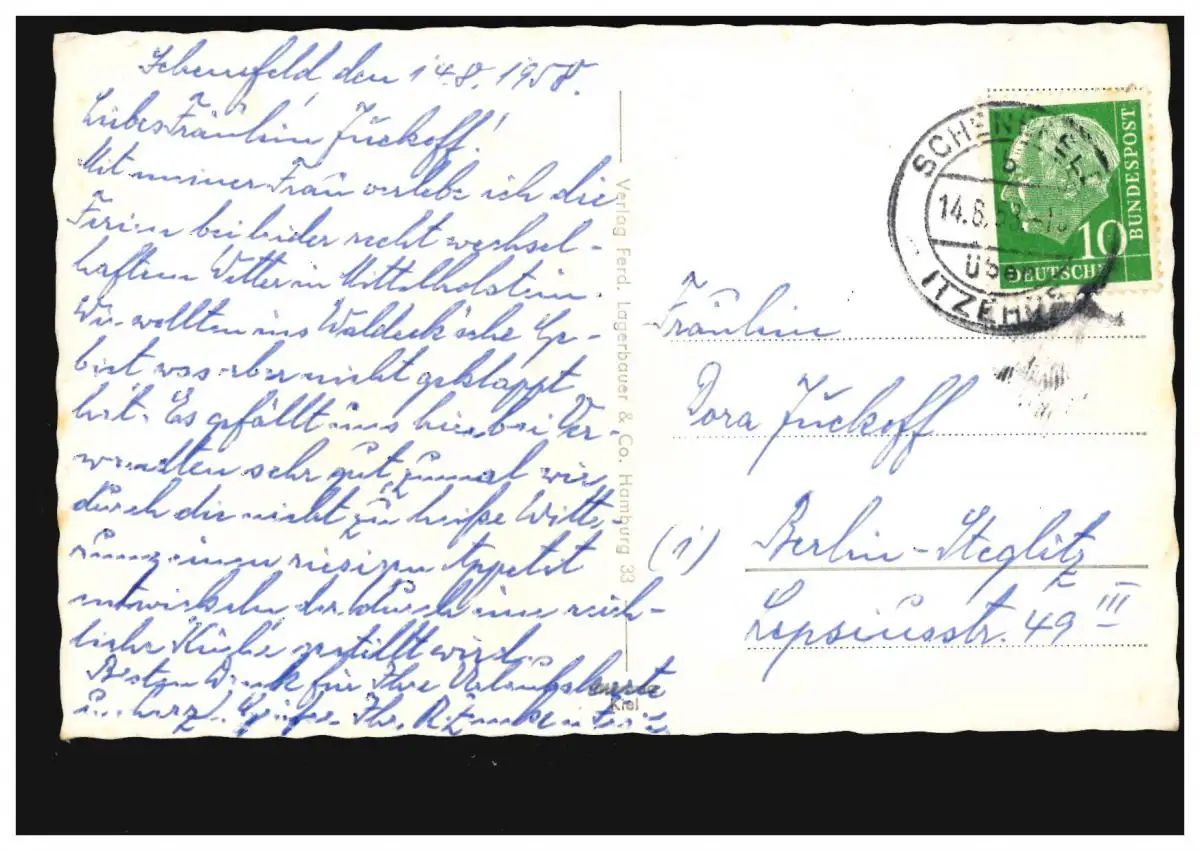 den 14.8.1958.
Liebes Fräulein Juckoff!
Mit meiner Frau verlebe ich die
Ferien bei leider recht wechsel-
haftem Wetter in Mittelholstein.
Wir wollten ins Waldeck'sche Ge-
biet was aber nicht geklappt
hat. Es gefällt uns hier bei Ver-
wandten sehr gut, zumal wir
durch die nicht zu heiße Witte-
rung einen riesigen Appetit
entwickeln der durch eine reich-
liche Küche gestillt wird.
Besten Dank für Ihre Urlaubskarte
u. herzl. Grüße Ihr
Verlag Ferd. Lagerbauer & Co. Hamburg 33
Kiel
SCHENEFELD
b
14.8.58
über
ITZEHOE
10
DEUTSCHE
BUNDESPOST
Fräulein
Dora Juckoff
(1) Berlin-Steglitz
Lepsiusstr. 49 III